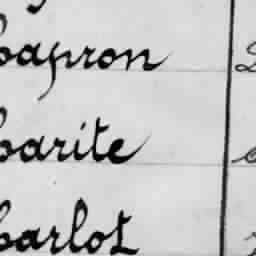 Capron
Carite
Carlot